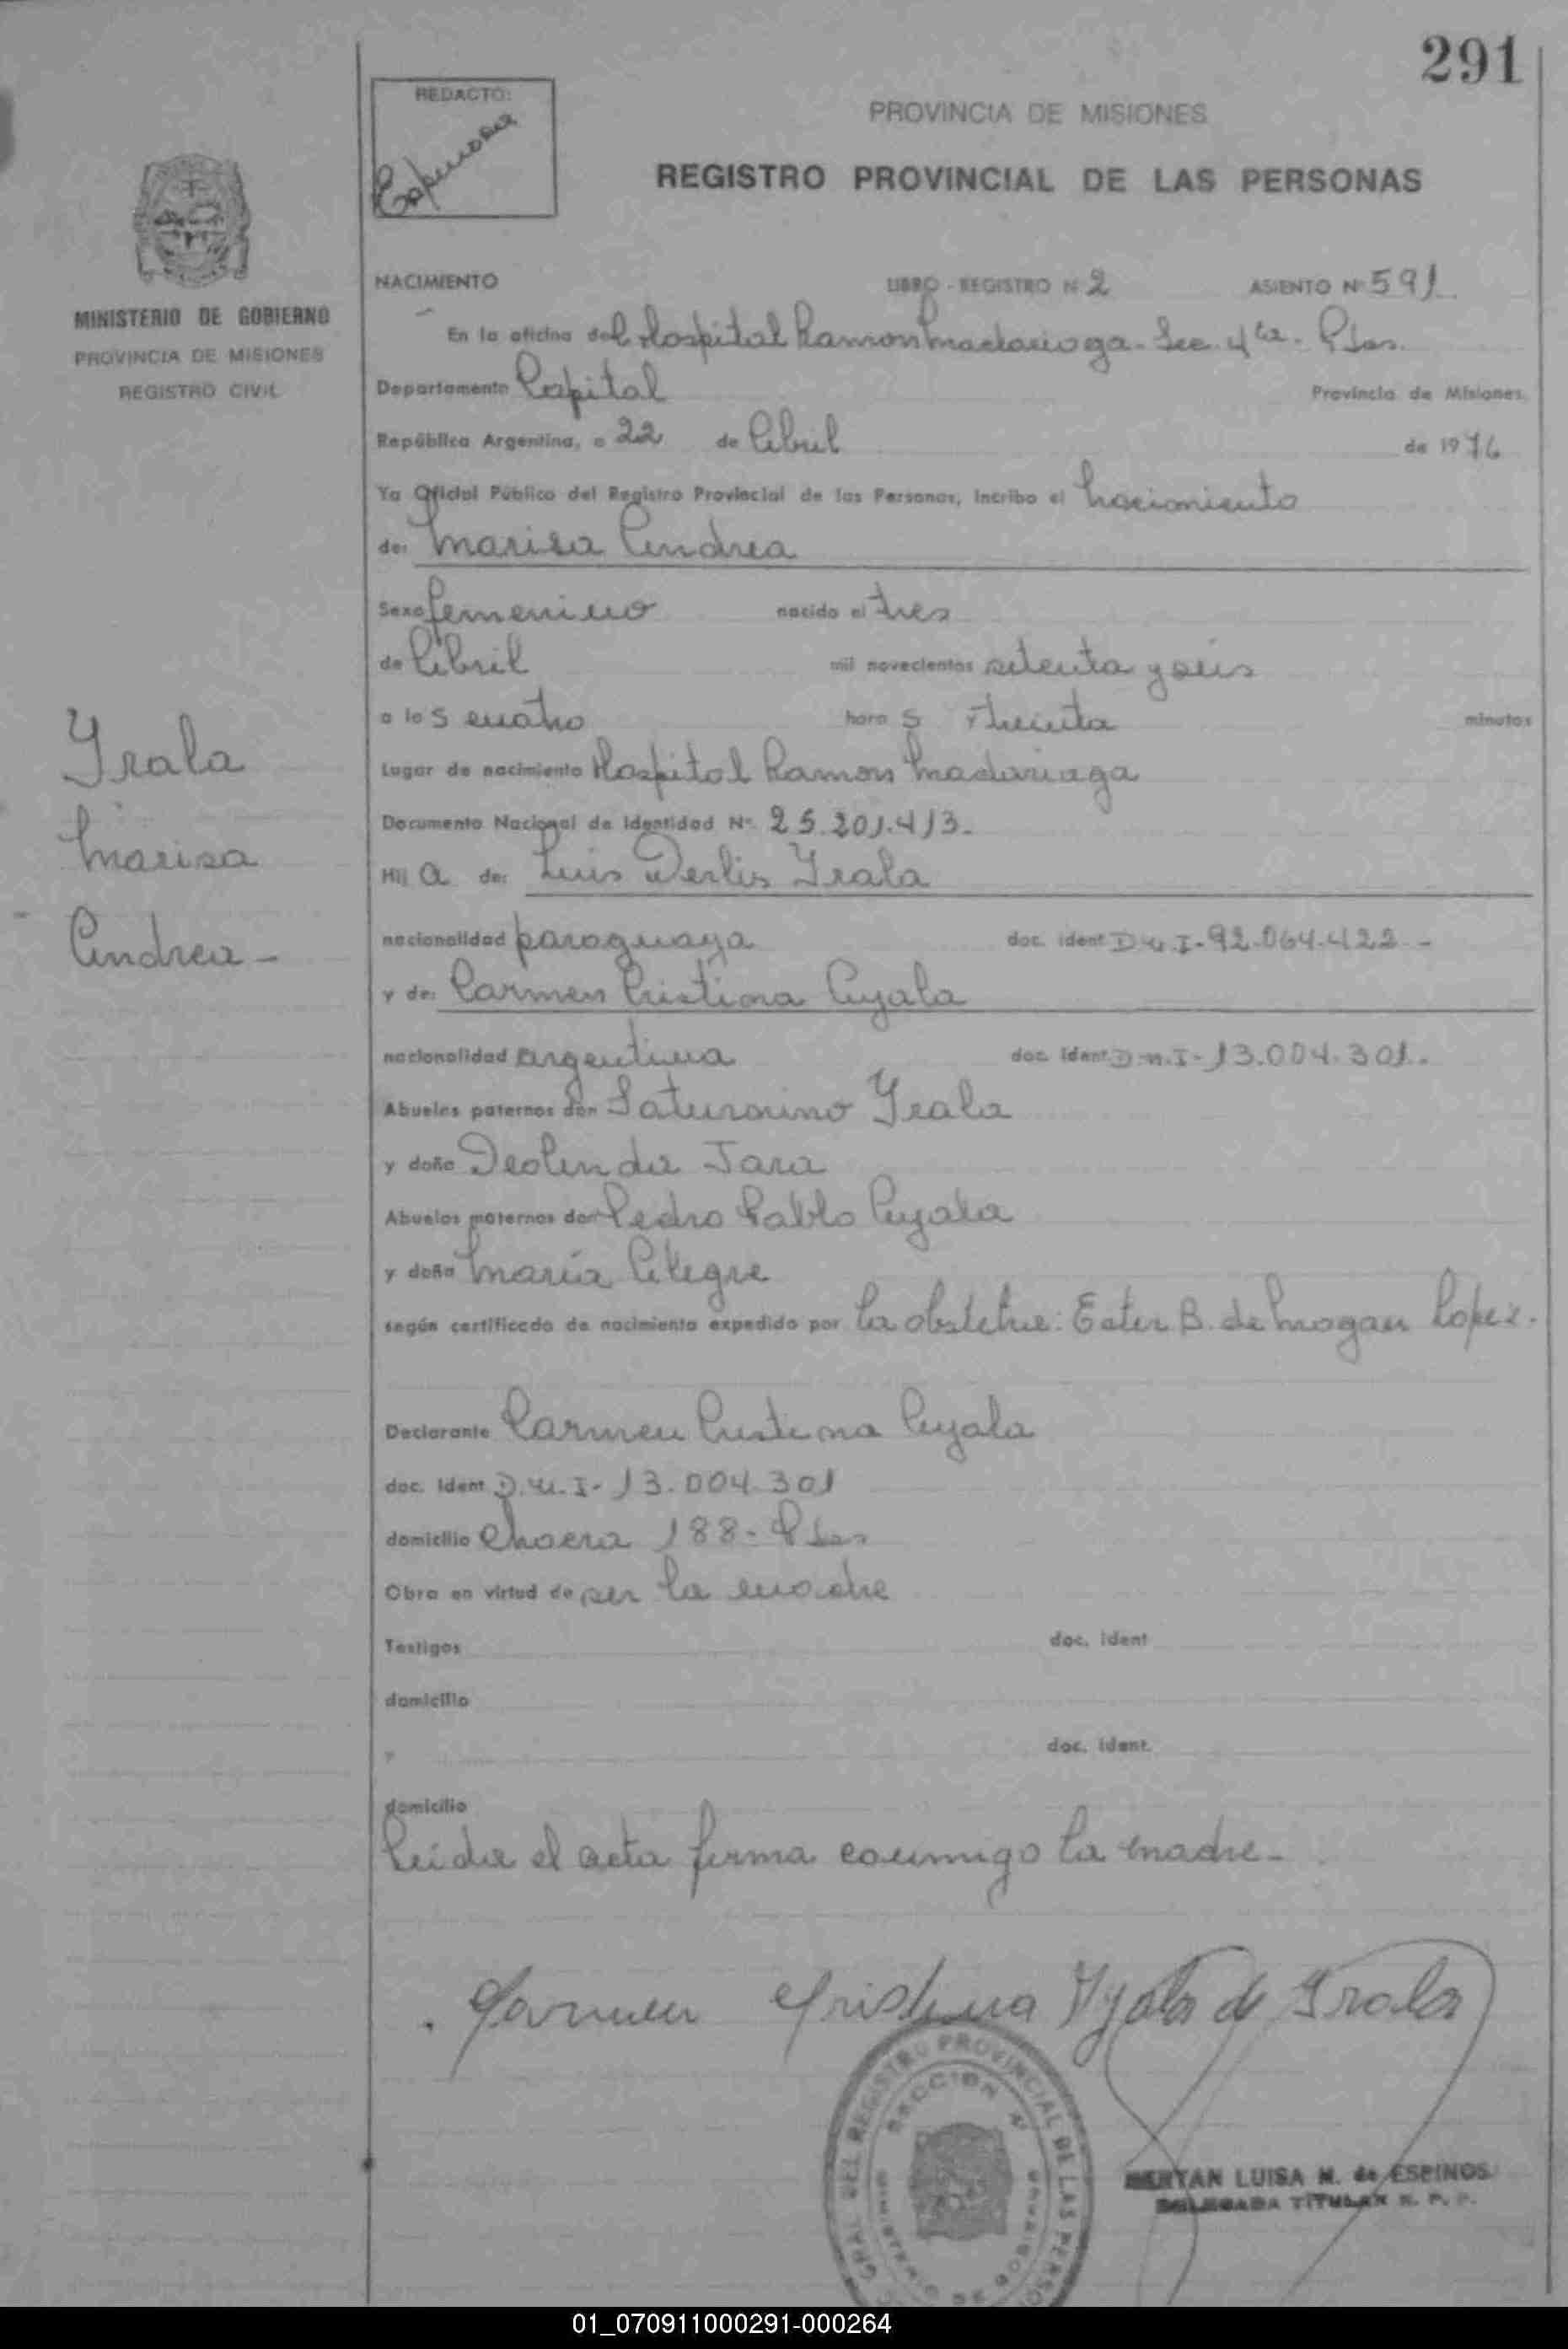 291
REDACTO:
Espinosa
PROVINCIA DE MISIONES
REGISTRO PROVINCIAL DE LAS PERSONAS
MINISTERIO DE GOBIERNO
PROVINCIA DE MISIONES
REGISTRO CIVIL
NACIMIENTO LIBRO - REGISTRO N 2 ASIENTO Nº 591
En la oficina del Hospital Ramon Madariaga - Sec. 4ta. Pdas.
Departamento Capital Provincia de Misiones.
República Argentina, a 22 de Abril de 1976
Yo Oficial Público del Registro Provincial de las Personas, incribo el Nacimiento
de: Marisa Andrea
Sexo femenino nacido el tres
de Abril mil novecientos setenta y seis
a las cuatro horas treinta minutos
Lugar de nacimiento Hospital Ramon Madariaga
Documento Nacional de Identidad Nº 25.201.413.
Hija de: Luis Derlis Irala
nacionalidad paraguaya doc. ident D.N.I-92.064.422-
y de: Carmen Cristina Ayala
nacionalidad argentina doc. ident D.N.I-13.004.301.
Abuelos paternos don Saturnino Irala
y doña Deolinda Jara
Abuelos maternos don Pedro Pablo Ayala
y doña Maria Alegre
según certificado de nacimiento expedido por la obstetra: Ester B. de Mogan Lopez.
Declarante Carmen Cristina Ayala
doc. ident D.N.I-13.004.301
domicilio 188- Pdas
Obra en virtud de ser la madre
Testigos doc. ident
domicilio
y doc. ident.
domicilio
Leida el acta firma conmigo la madre-
Irala
Marisa
Andrea-
Carmen Cristina Ayala de Irala
GRAL DEL REGISTRO PROVINCIAL DE LAS PERSO
SECCION Nº
MINISTERIO DE GOBIERNO
BERTAN LUISA N. de ESPINOS
DELEGADA TITULAR R. P. P.
01_070911000291-000264